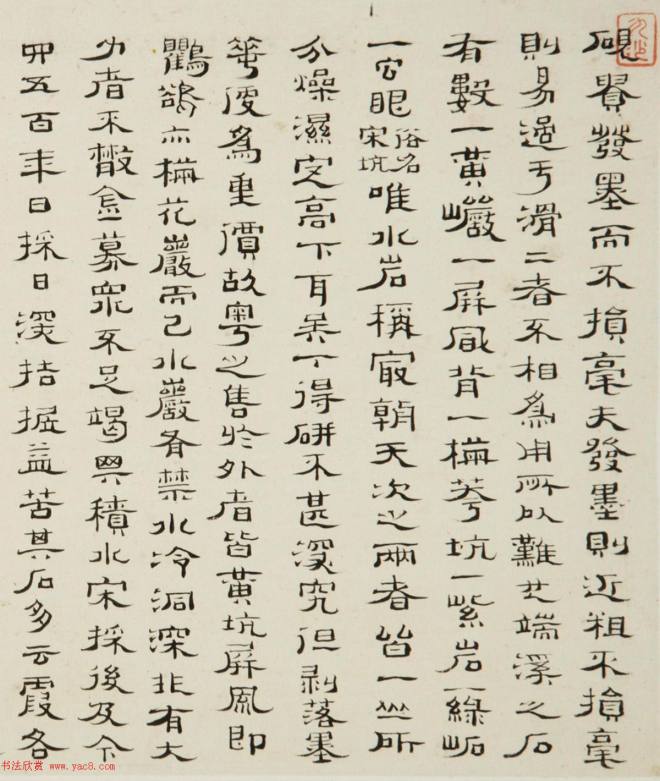 硯貴發墨而不損毫夫發墨則近粗不損毫
則易過亏滑二者不相為用所以難也端溪之石
有數一黃巗一屏風背一梅坑一紫岩一綠
一宕眼俗名宋坑唯水岩稱最朝天次之兩者皆一坐所
分燥濕定高下耳吳下得研不甚深究但剥落墨
華便為重價故粵之售於外者皆黃坑屏風即
鸜鵒亦梅花巖而已水巖有禁水冷洞深非有大
力者不敢募眾不足竭其積水宋採後及今
五百年日採日深拮据益苦其石多云霞各
书法欣赏 www.yac8.com